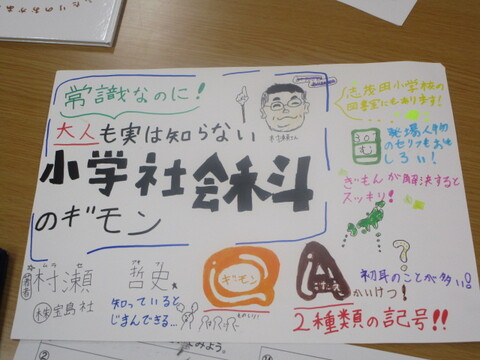 常識なのに!
大人も実は知らない
小学社会科
のギモン
著者
村瀬 哲史
㈱宝島社
知っていると
じまんできる…
志茂田小学校の
図書室にもあります!
登場人物
のセリフもおも
しろい!
ぎもんが解決すると
スッキリ!
?
初耳のことが多い!
ギモン
Q
A
こたえ
かいけつ!
2種類の記号!!